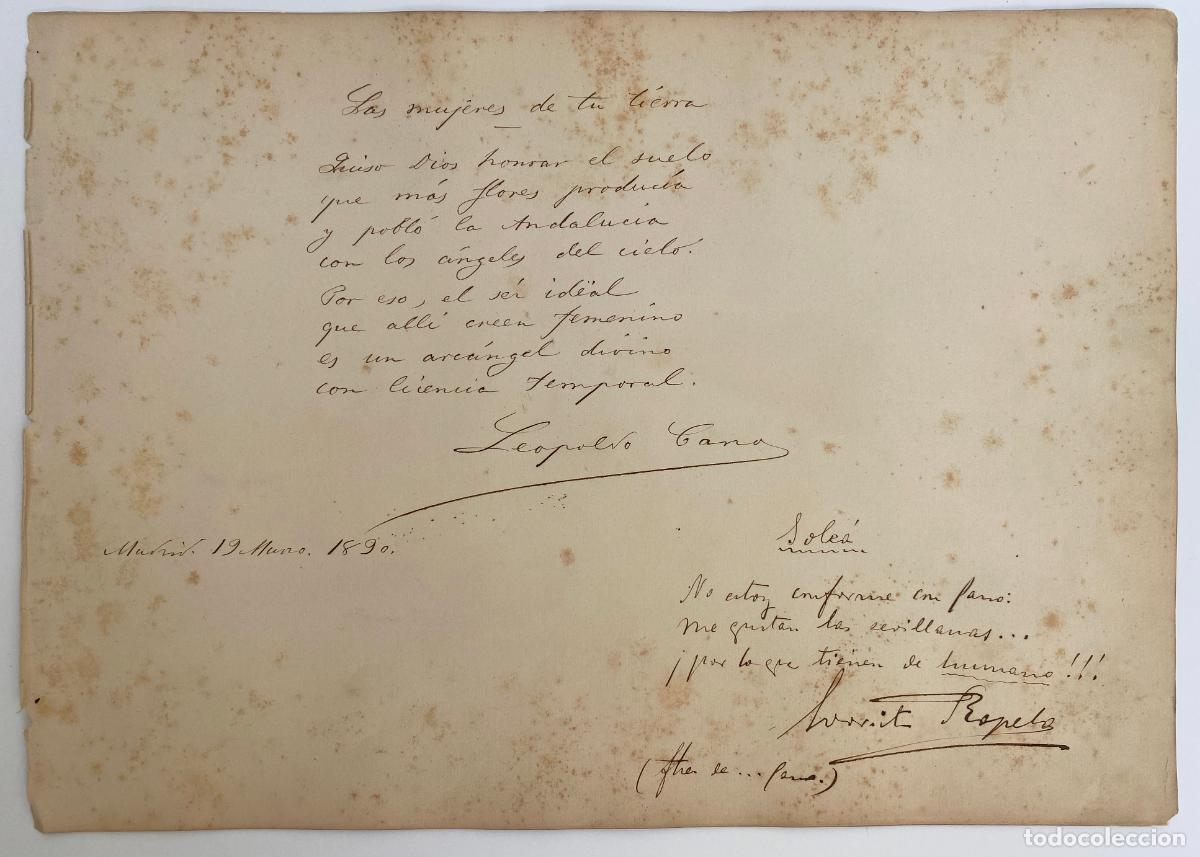 Las mujeres de tu tierra
Quiso Dios honrar el suelo
que más flores producía
y pobló la Andalucía
con los ángeles del cielo.
Por eso, el sér idëal
que allí creen femenino
es un arcángel divino
con licencia temporal.
Leopoldo Cano
Madrid. 19 Marzo. 1890.
Soleá
No estoy conforme con Cano:
me gustan las sevillanas...
¡por lo que tienen de humano!!!
Rapela
( de... Cano.)
todocoleccion